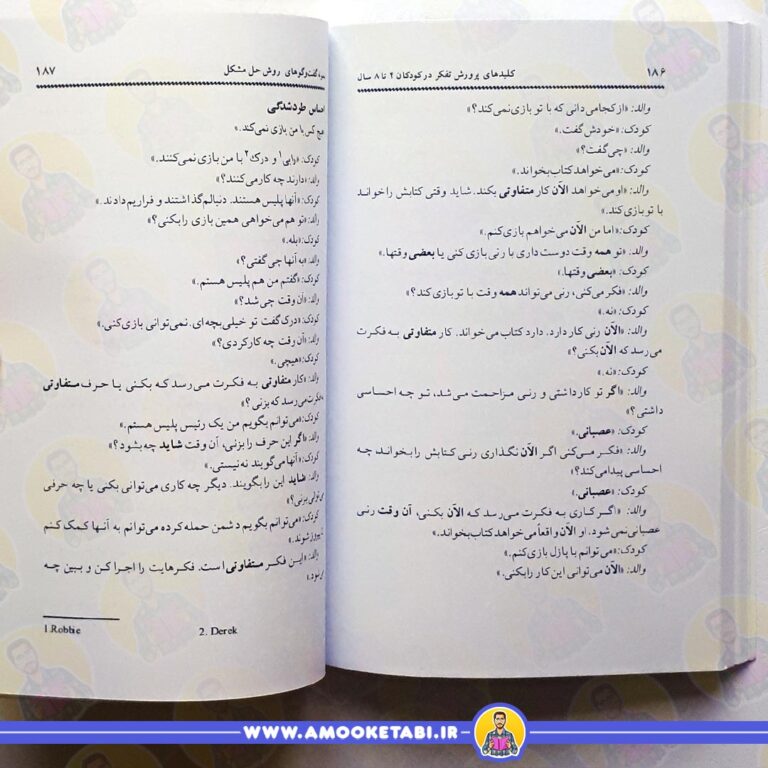 ۱۸۶ کلیدهای پرورش تفکر در کودکان ۴ تا ۸ سال
والد: «از کجا می‌دانی که با تو بازی نمی‌کند؟»
کودک: «خودش گفت.»
والد: «چی گفت؟»
کودک: «می‌خواهد کتاب بخواند.»
والد: «او می‌خواهد الآن کار متفاوتی بکند. شاید وقتی کتابش را خواند
با تو بازی کند.»
کودک: «اما من الآن می‌خواهم بازی کنم.»
والد: «تو همه وقت دوست داری با رنی بازی کنی یا بعضی وقتها.»
کودک: «بعضی وقتها.»
والد: «فکر می‌کنی، رنی می‌تواند همه وقت با تو بازی کند؟»
کودک: «نه.»
والد: «الآن رنی کار دارد. دارد کتاب می‌خواند. کار متفاوتی به فکرت
می‌رسد که الآن بکنی؟»
کودک: «نه.»
والد: «اگر تو کار داشتی و رنی مزاحمت می‌شد، تو چه احساسی
داشتی؟»
کودک: «عصبانی.»
والد: «فکر می‌کنی اگر الآن نگذاری رنی کتابش را بخواند چه
احساسی پیدا می‌کند؟»
کودک: «عصبانی.»
والد: «اگر کاری به فکرت می‌رسد که الآن بکنی، آن وقت رنی
عصبانی نمی‌شود. او الآن واقعاً می‌خواهد کتاب بخواند.»
کودک: «می‌توانم با پازل بازی کنم.»
والد: «الآن می‌توانی این کار را بکنی.»
گفت‌وگوهای روش حل مشکل ۱۸۷
احساس طردشدگی
هیچ کس با من بازی نمی‌کند.»
کودک: «رابی۱ و درک۲ با من بازی نمی‌کنند.»
والد: «دارند چه کار می‌کنند؟»
کودک: «آنها پلیس هستند. دنبالم گذاشتند و فراریم دادند.»
والد: «تو هم می‌خواهی همین بازی را بکنی؟»
کودک: «بله.»
والد: «به آنها چی گفتی؟»
کودک: «گفتم من هم پلیس هستم.»
والد: «آن وقت چی شد؟»
کودک: «درک گفت تو خیلی بچه‌ای. نمی‌توانی بازی کنی.»
والد: «آن وقت چه کار کردی؟»
کودک: «هیچی.»
والد: «کار متفاوتی به فکرت می‌رسد که بکنی یا حرف متفاوتی
به فکرت می‌رسد که بزنی؟»
کودک: «می‌توانم بگویم من یک رئیس پلیس هستم.»
والد: «اگر این حرف را بزنی، آن وقت شاید چه بشود؟»
کودک: «آنها می‌گویند نه نیستی.»
والد: «شاید این را بگویند. دیگر چه کاری می‌توانی بکنی یا چه حرفی
می‌توانی بزنی؟»
کودک: «می‌توانم بگویم دشمن حمله کرده می‌توانم به آنها کمک کنم
پیروز شوند.»
والد: «این فکر متفاوتی است. فکرهایت را اجرا کن و ببین چه
می‌شود.»
1.Robbie 2. Derek
WWW.AMOOKETABI.IR